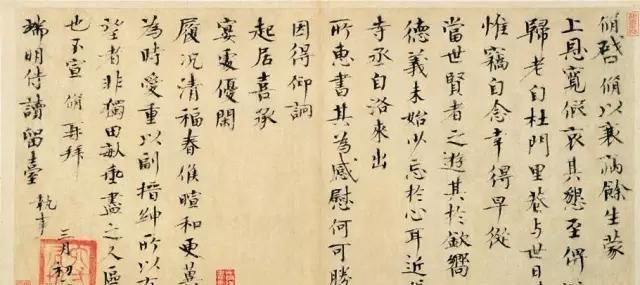 脩啓脩以衰病餘生蒙
上恩寬假哀其懇至俾
歸老自杜門里巷与世日
惟竊自念幸得早從
當世賢者之遊其於欽嚮
德義未始少忘於心耳近
寺丞自洛來出
所惠書其為感慰何可勝
因得仰詢
起居喜承
宴處優閑
履況清福春候暄和更冀
為時愛重以副搢紳所以有
望者非獨田畝垂盡之人區
也不宣脩再拜
端明侍讀留臺 執事
三月初